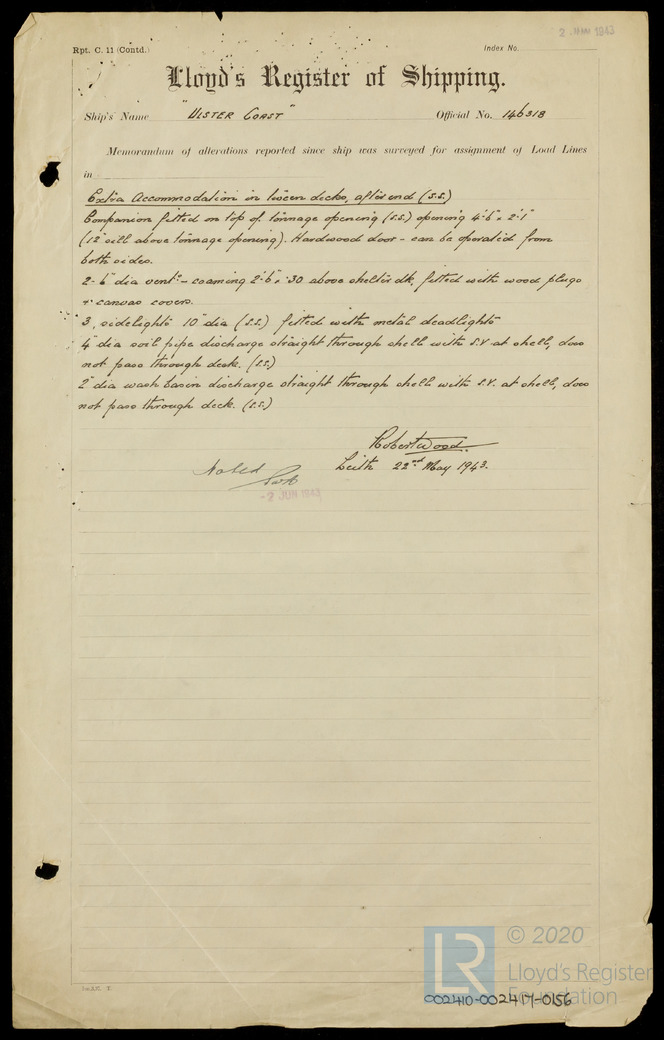 2 JUN 1943
Rpt. C. 11 (Contd.)
Index No.
Lloyd's Register of Shipping.
Ship's Name "ULSTER COAST" Official No. 146318
Memorandum of alterations reported since ship was surveyed for assignment of Load Lines
in
Extra Accommodation in tween decks, after end (S.S.)
Companion fitted on top of tonnage opening (S.S.) opening 4'-6" x 2'-1"
(12" sill above tonnage opening). Hardwood door - can be operated from
both sides.
2 - 6" dia vents - coaming 2'-6" x .30 above shelter dk, fitted with wood plugs
& canvas covers.
3, sidelights 10" dia (S.S.) fitted with metal deadlights
4" dia soil pipe discharge straight through shell with S.V at shell, does
not pass through deck. (S.S.)
2" dia wash basin discharge straight through shell with S.V. at shell, does
not pass through deck. (S.S.)
Robert Wood.
Leith 22nd May 1943.
Noted
-2 JUN 1943
LR
© 2020
Lloyd's Register
Foundation
002410-002417-0156